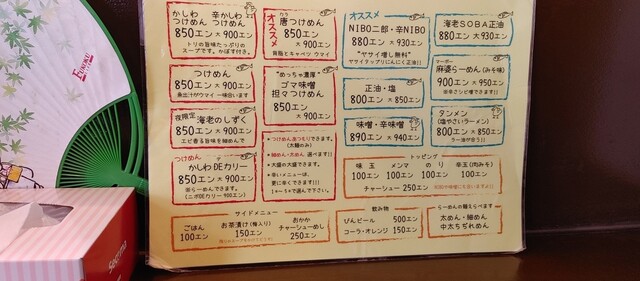 かしわ 辛かしわ
つけめん つけめん
850エン 大900エン
トリの旨味たっぷりの
スープです。かぼす付き。
オススメ
唐つけめん
850エン 大900エン
背脂とキャベツ ウマイ
つけめん
850エン 大900エン
魚出汁がウマイ 一味合います
夜限定
海老のしずく
850エン 大900エン
エビ香る旨味を細めんで
つけめん
かしわDEカリー
850エン 大900エン
"めっちゃ濃厚"
ゴマ味噌
担々つけめん
850エン
大900エン
*つけめん缶つもりできます。
*細めん・太めん 選べます!!
*大盛の大盛できます。
*辛いメニューは、
更に辛くできます!
オススメ
NIBO二郎・辛NIBO
880エン 大930エン
"ヤサイ増し無料"
ヤサイタップリにんにく正油!!
海老SOBA正油
880エン 大930エン
正油・塩
800エン 大850エン
麻婆らーめん(みそ味)
900エン 大950エン
味噌・辛味噌
890エン 大940エン
タンメン
(塩やさいラーメン)
800エン 大850エン
トッピング
味玉 メンマ のり 辛玉(肉みそ)
100エン 100エン 100エン 100エン
チャーシュー 250エン
サイドメニュー
ごはん
100エン
お茶漬け(梅入り)
150エン
おかか
チャーシューめし
250エン
飲み物
びんビール 500エン
コーラ・オレンジ 150エン
らーめんの麺えらべます
太めん・細めん
中太ちぢれめん